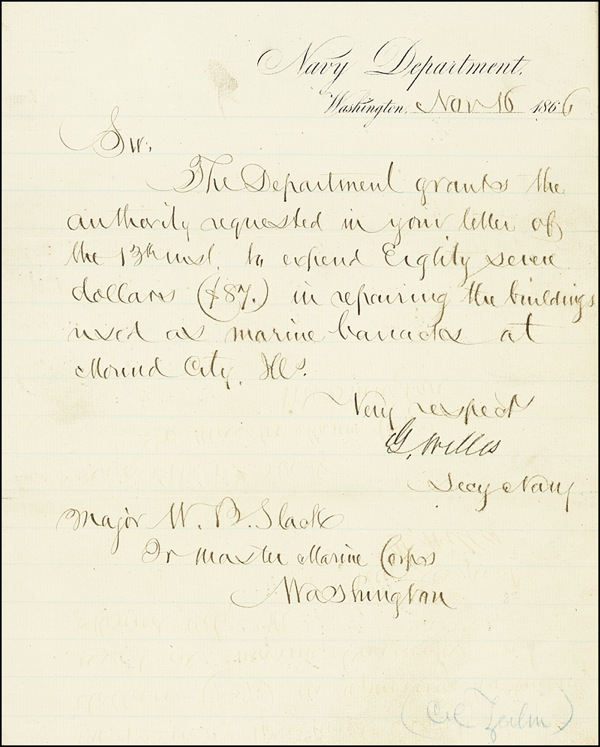 Navy Department.
Washington, Nov 16 1866
Sir,
The Department grants the
authority requested in your letter of
the 13th inst. to expend Eighty seven
dollars ($87.) in repairing the buildings
used as marine barracks at
Mound City, Ills.
Very respect
G. Welles
Secy Navy
Major W. B. Slack
Qr master Marine Corps
Washington
(Col Zeilin)